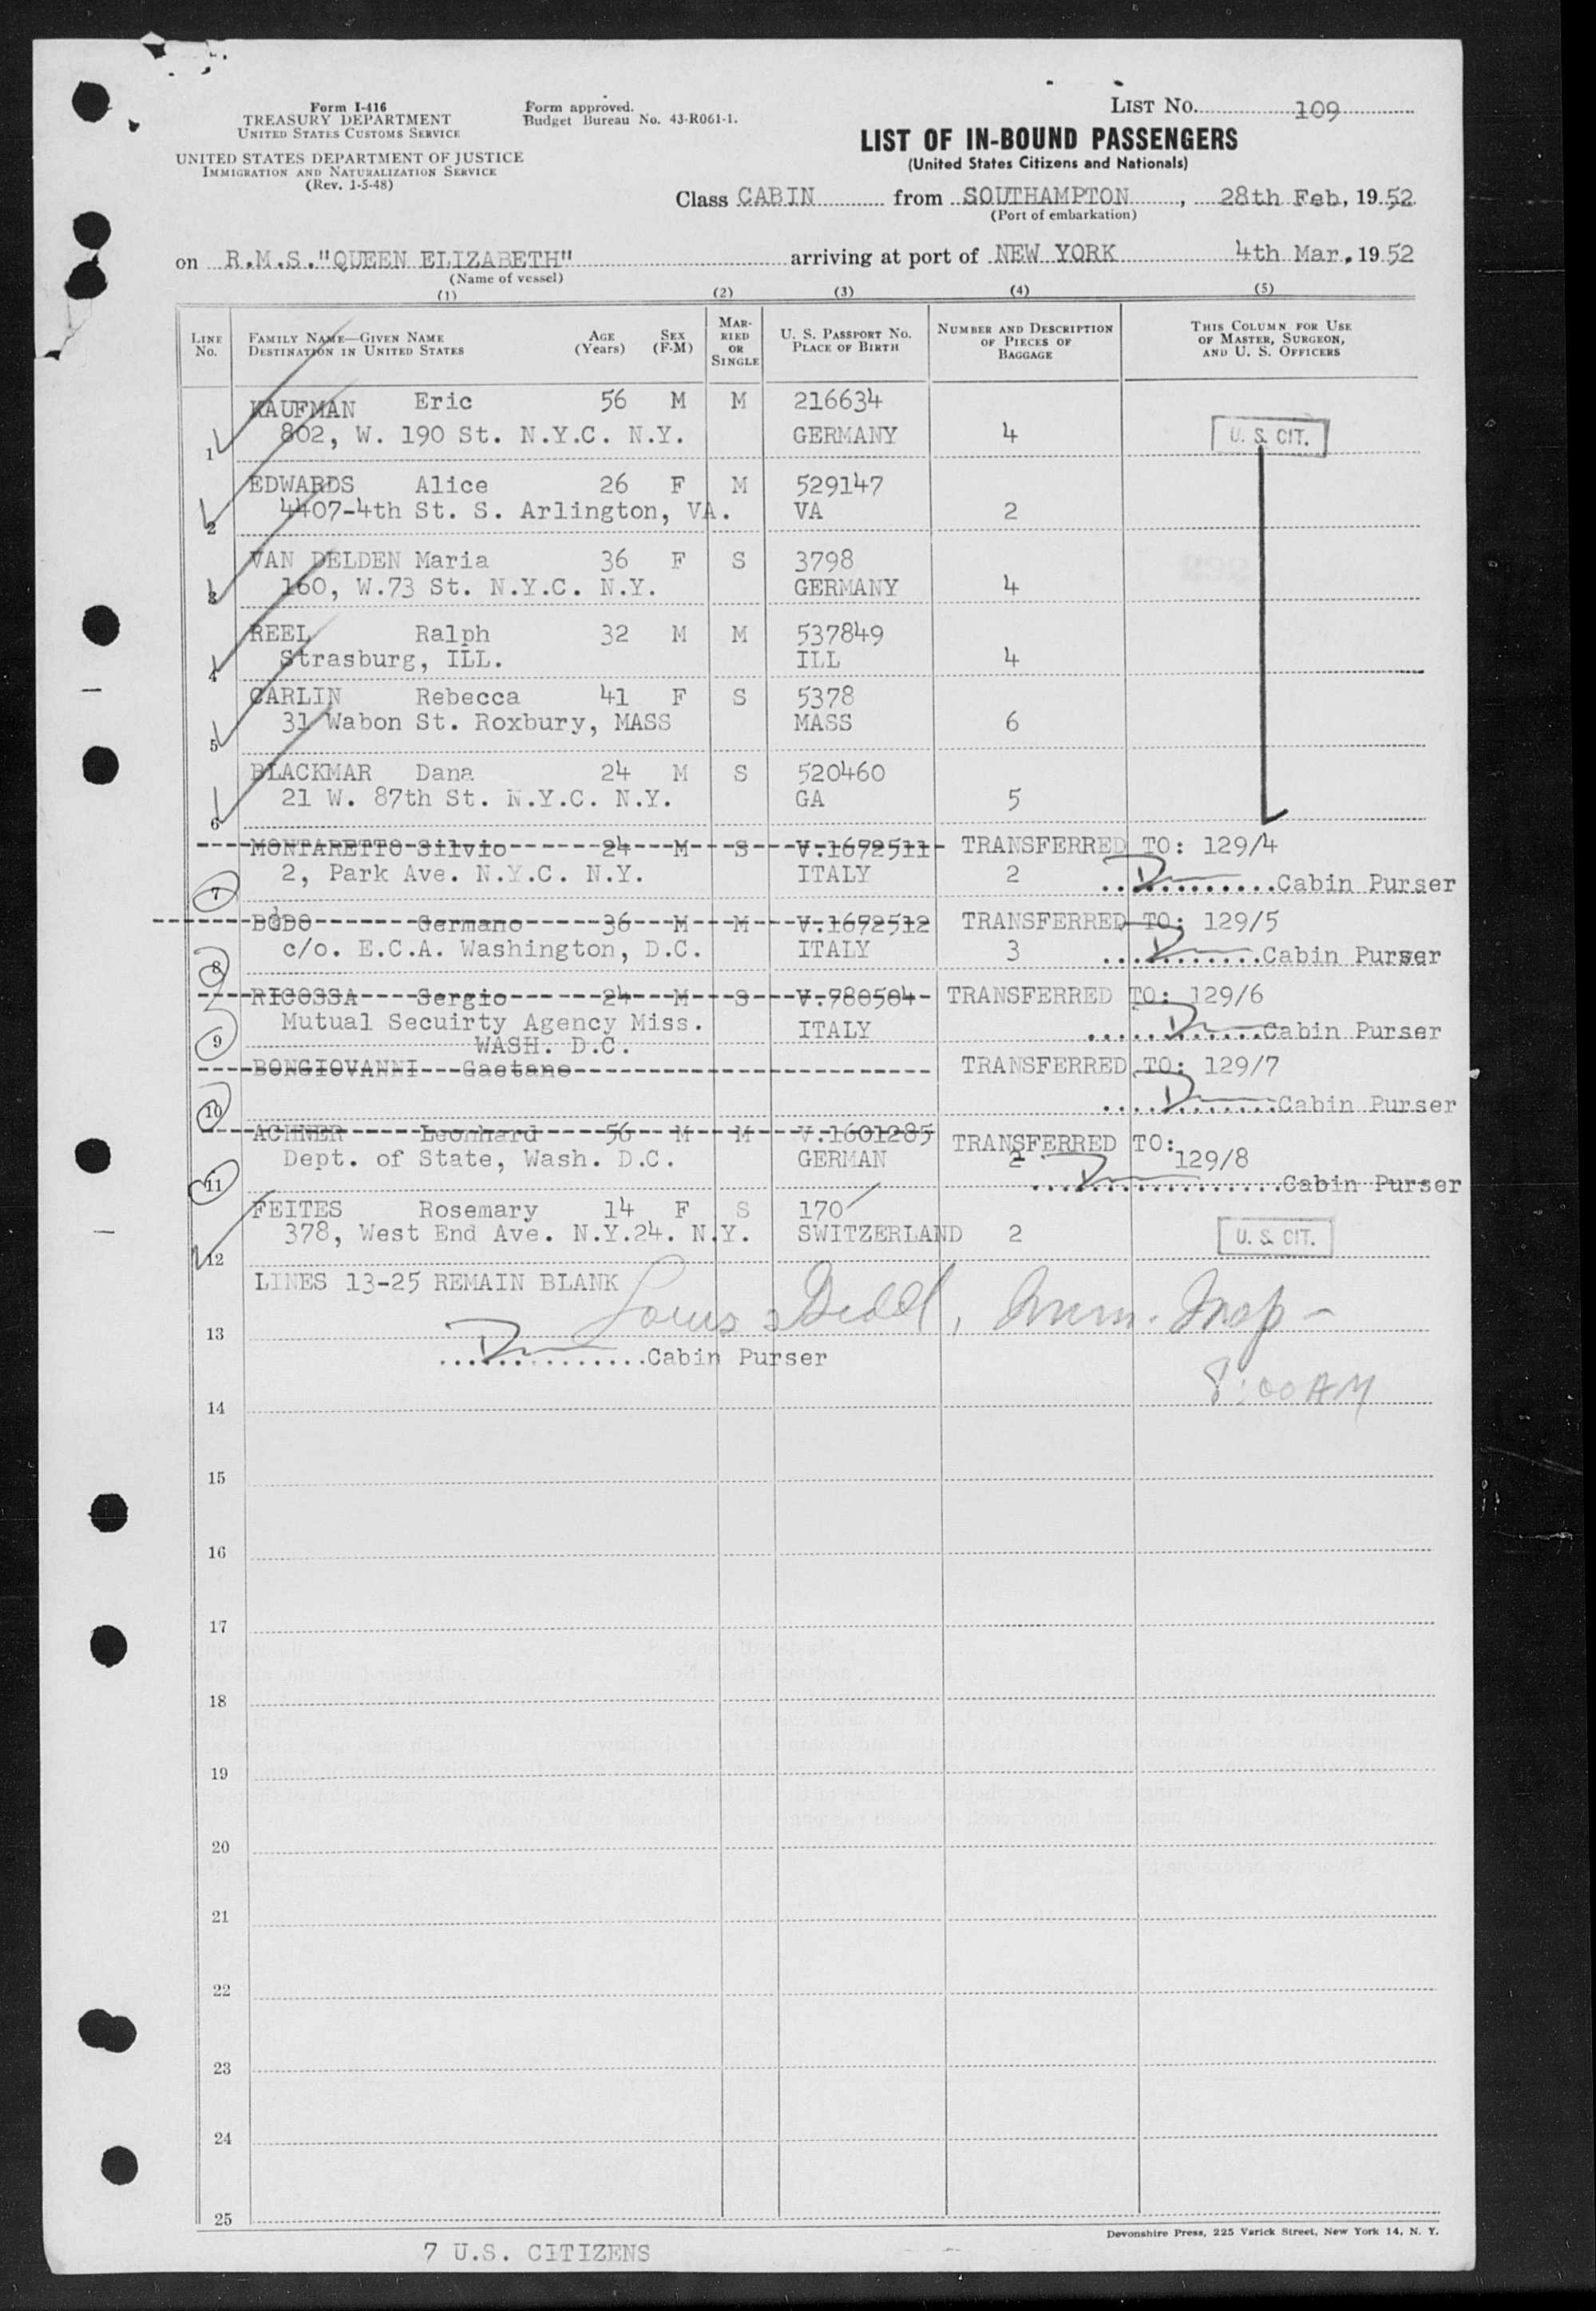 Form I-416
TREASURY DEPARTMENT
UNITED STATES CUSTOMS SERVICE
UNITED STATES DEPARTMENT OF JUSTICE
IMMIGRATION AND NATURALIZATION SERVICE
(Rev. 1-5-48)
Form approved.
Budget Bureau No. 43-R061-1.
LIST NO. 109
LIST OF IN-BOUND PASSENGERS
(United States Citizens and Nationals)
Class CABIN from SOUTHAMPTON, 28th Feb, 1952
(Port of embarkation)
on R.M.S."QUEEN ELIZABETH" arriving at port of NEW YORK 4th Mar. 1952
(Name of vessel)
(1) (2) (3) (4) (5)
LINE NO. FAMILY NAME—GIVEN NAME DESTINATION IN UNITED STATES AGE (Years) SEX (F-M) MARRIED OR SINGLE U. S. PASSPORT NO. PLACE OF BIRTH NUMBER AND DESCRIPTION OF PIECES OF BAGGAGE THIS COLUMN FOR USE OF MASTER, SURGEON, AND U. S. OFFICERS
KAUFMAN Eric 56 M M 216634
1 802, W. 190 St. N.Y.C. N.Y. GERMANY 4 U. S. CIT.
EDWARDS Alice 26 F M 529147
2 4407-4th St. S. Arlington, VA. VA 2
VAN DELDEN Maria 36 F S 3798
3 160, W.73 St. N.Y.C. N.Y. GERMANY 4
REEL Ralph 32 M M 537849
4 Strasburg, ILL. ILL 4
CARLIN Rebecca 41 F S 5378
5 31 Wabon St. Roxbury, MASS MASS 6
BLACKMAR Dana 24 M S 520460
6 21 W. 87th St. N.Y.C. N.Y. GA 5
MONTARETTO Silvio 24 M S V.1672511 TRANSFERRED TO: 129/4
7 2, Park Ave. N.Y.C. N.Y. ITALY 2 Cabin Purser
BODO Germano 36 M M V.1672512 TRANSFERRED TO: 129/5
8 c/o. E.C.A. Washington, D.C. ITALY 3 Cabin Purser
RICOSSA Sergio 24 M S V.780504 TRANSFERRED TO: 129/6
9 Mutual Secuirty Agency Miss. ITALY Cabin Purser
WASH. D.C.
BONGIOVANNI Gaetano TRANSFERRED TO: 129/7
10 Cabin Purser
ACHNER Leonhard 56 M M V.1601285 TRANSFERRED TO:
11 Dept. of State, Wash. D.C. GERMAN 2 129/8
Cabin Purser
FEITES Rosemary 14 F S 170
12 378, West End Ave. N.Y.24. N.Y. SWITZERLAND 2 U. S. CIT.
LINES 13-25 REMAIN BLANK
13 Louis Imm. Insp -
Cabin Purser
8:00 AM
14
15
16
17
18
19
20
21
22
23
24
25
Devonshire Press, 225 Varick Street, New York 14, N. Y.
7 U.S. CITIZENS